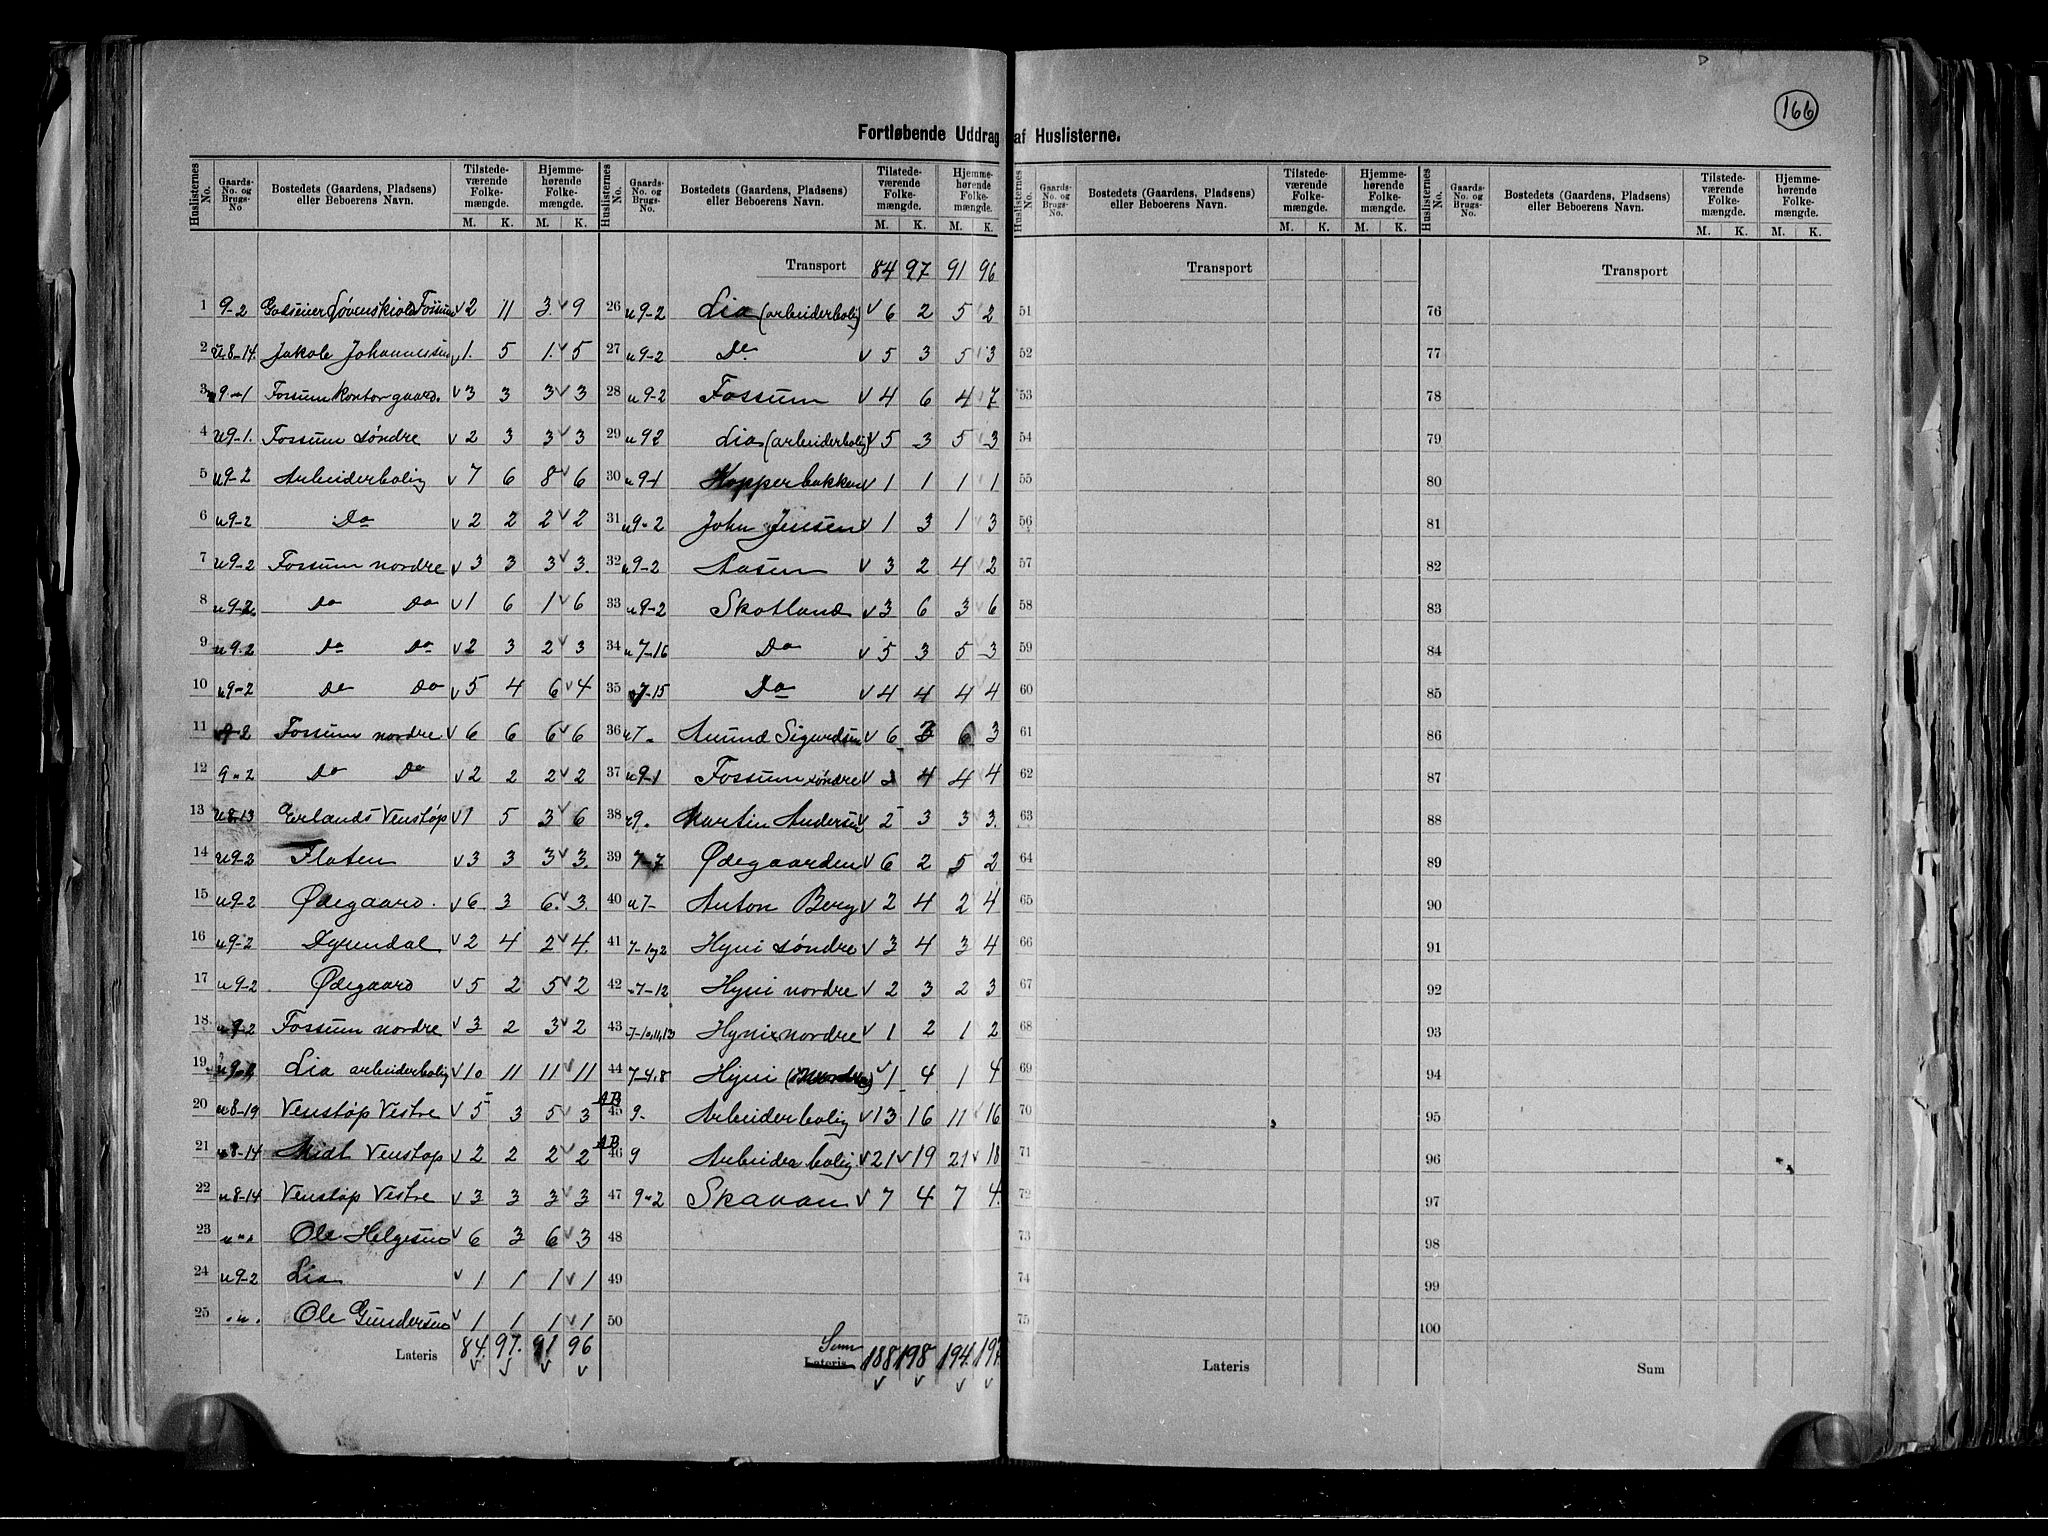 166
Fortløbende Uddrag af Huslisterne.
Huslisternes No. Gaards-No. og Brugs-No. Bostedets (Gaardens, Pladsens) eller Beboerens Navn. Tilstedeværende Folkemængde. Hjemmehørende Folkemængde. Huslisternes No. Gaards-No. og Brugs-No. Bostedets (Gaardens, Pladsens) eller Beboerens Navn. Tilstedeværende Folkemængde. Hjemmehørende Folkemængde. Huslisternes No. Gaards-No. og Brugs-No. Bostedets (Gaardens, Pladsens) eller Beboerens Navn. Tilstedeværende Folkemængde. Hjemmehørende Folkemængde. Huslisternes No. Gaards-No. og Brugs-No. Bostedets (Gaardens, Pladsens) eller Beboerens Navn. Tilstedeværende Folkemængde. Hjemmehørende Folkemængde.
M. K. M. K. M. K. M. K. M. K. M. K. M. K. M. K.
Transport 84 97 91 96 Transport Transport
1 9-2 Godseier Løvenskiold Fossum 2 11 3 9 26 u 9-2 Lia (arbeiderbolig) 6 2 5 2 51 76
2 u 8-14. Jakob Johannessen 1. 5 1. 5 27 u 9-2 Do 5 3 5 3 52 77
3 9-1 Fossum kontorgaard. 3 3 3 3 28 u 9-2 Fossum 4 6 4 7 53 78
4 u 9-1. Fossum søndre 2 3 3 3 29 u 92 Lia (arbeiderbolig) 5 3 5 3 54 79
5 u 9-2 Arbeiderbolig 7 6 8 6 30 u 9-1 Hopperbakken 1 1 1 1 55 80
6 u 9-2 Do 2 2 2 2 31 u 9-2 John Jensen 1 3 1 3 56 81
7 u 9-2 Fossum nordre 3 3 3 3. 32 u 9-2 Aasen 3 2 4 2 57 82
8 u 9-2 Do Do 1 6 1 6 33 u 9-2 Skotland 3 6 3 6 58 83
9 u 9-2 Do Do 2 3 2 3 34 u 7-16 Do 5 3 5 3 59 84
10 u 9-2 Do Do 5 4 6 4 35 7-15 Do 4 4 4 4 60 85
11 9-2 Fossum nordre 6 6 6 6 36 u 7- Amund Sigurdsen 6 3 6 3 61 86
12 9-2 Do Do 2 2 2 2 37 u 9-1 Fossum søndre 3 4 4 4 62 87
13 u 8-13 Erlands Venstøp 1 5 3 6 38 u 9. Martin Andersen 2 3 3 3. 63 88
14 u 9-2 Flaten 3 3 3 3. 39 7-7 Ødegaarden 6 2 5 2 64 89
15 u 9-2 Ødegaard. 6 3 6. 3. 40 u 7- Anton Berg 2 4 2 4 65 90
16 u 9-2 Dyrendal 2 4 2 4. 41 7-1,2 Hyni søndre 3 4 3 4 66 91
17 u 9-2 Ødegaard 5 2 5 2 42 7-12 Hyni nordre 2 3 2 3 67 92
18. u 9-2 Fossum nordre 3 2 3 2 43 7-10,11,13 Hyni nordre 1 2 1 2 68 93
19 u 9-2 Lia arbeiderbolig 10 11 11 11 44 7-4,8 Hyni 1 4 1 4 69 94
20 u 8-19 Venstøp Vestre 5 3 5 3 AB 45 9- Arbeiderbolig 13 16 11 16 70 95
21 u 8-14 Midt Venstøp 2 2 2 2 AB 46 9 Arbeiderbolig 21 19 21 18 71 96
22 u 8-14 Venstøp Vestre 3 3 3 3 47 9-2 Skavan 7 4 7 4. 72 97
23 u " " Ole Helgesen 6 3 6 3 48 73 98
24 u 9-2 Lia 1 1 1 1 49 74 99
25 " u. Ole Gundersen 1 1 1 1 50 75 100
Lateris 84. 97. 91 96 Lateris Sum 188 198 194. 197. Lateris Sum